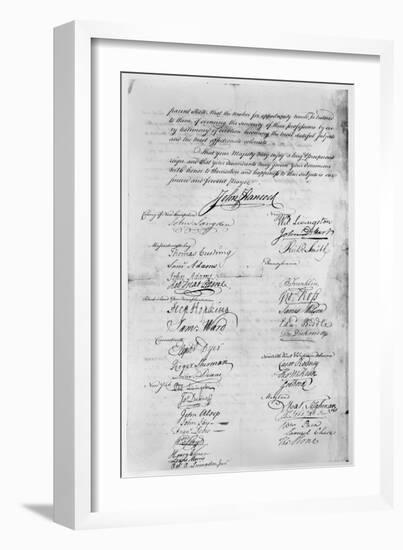 parent State. That the wished for opportunity would
to them, of evincing the sincerity of their professions by ev-
ery testimony of devotion becoming the most dutiful subjects
and the most affectionate colonists
That your Majesty may enjoy a long & prosperous
reign, and that your descendants may govern your dominions
with honor to themselves and happiness to their subjects is our
sincere and fervent prayer
John Hancock
Colony of New Hampshire
John Langdon
Massachusetts Bay
Thomas Cushing
Saml Adams
John Adams
Robt Treat Paine
Step Hopkins
Sam: Ward
Connecticut
Elipht Dyer
Roger Sherman
Silas Deane
New York
Phil Livingston
Jas Duane
John Alsop
John Jay
Frans Lewis
Wm Floyd
Lewis Morris
Robt R Livingston junr
New Jersey
Wil: Livingston
John De Hart
Richd Smith
Pennsylvania
B Franklin
Geo: Ross
James Wilson
Edwd Biddle
John Dickinson
Caesar Rodney
Tho M:Kean
Maryland
Wm Paca
Samuel Chase
Thos Stone